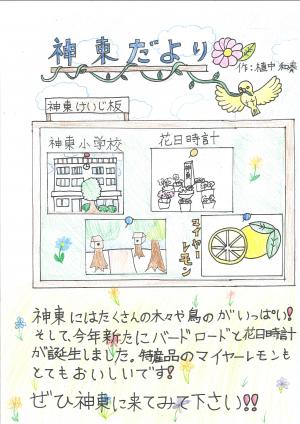 神東だより
作:植中和奏
神東けいじ板
神東小学校
花日時計
マイヤーレモン
神東にはたくさんの木々や鳥のがいっぱい!
そして、今年新たにバードロードと花日時計
が誕生しました。特産品のマイヤーレモンも
とてもおいしいです!
ぜひ神東に来てみて下さい!!